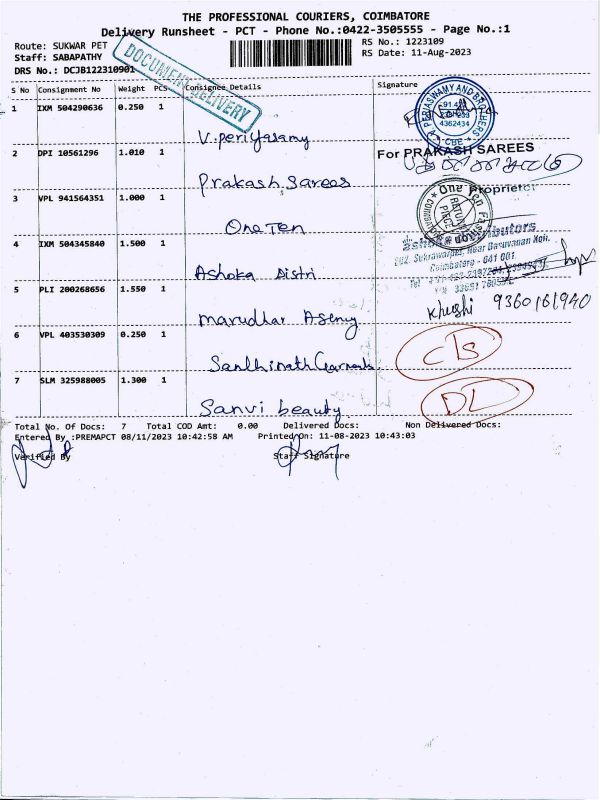 THE PROFESSIONAL COURIERS, COIMBATORE
Delivery Runsheet - PCT - Phone No.:0422-3505555 - Page No.:1
Route: SUKWAR PET RS No.: 1223109
Staff: SABAPATHY RS Date: 11-Aug-2023
DRS No.: DCJB122310901
DOCUMENT DELIVERY
S No Consignment No Weight PCS Consignee Details Signature
1 IXM 504290636 0.250 1
V.periyasamy
PERIASWAMY AND BROTHERS
CBE
2 DPI 10561296 1.010 1
Prakash Sarees
For PRAKASH SAREES
Proprietor
3 VPL 941564351 1.000 1
One Ten
One Ten
4 IXM 504345840 1.500 1
Ashoka Distri
Coimbatore - 641 001
5 PLI 200268656 1.550 1
Marudhar Agency
Khushi 9360161940
6 VPL 403530309 0.250 1
Santhinath Garments
CLS
7 SLM 325988005 1.300 1
Sanvi beauty
DL
Total No. Of Docs: 7 Total COD Amt: 0.00 Delivered Docs: Non Delivered Docs:
Entered By :PREMAPCT 08/11/2023 10:42:58 AM Printed On: 11-08-2023 10:43:03
Verified By Staff Signature